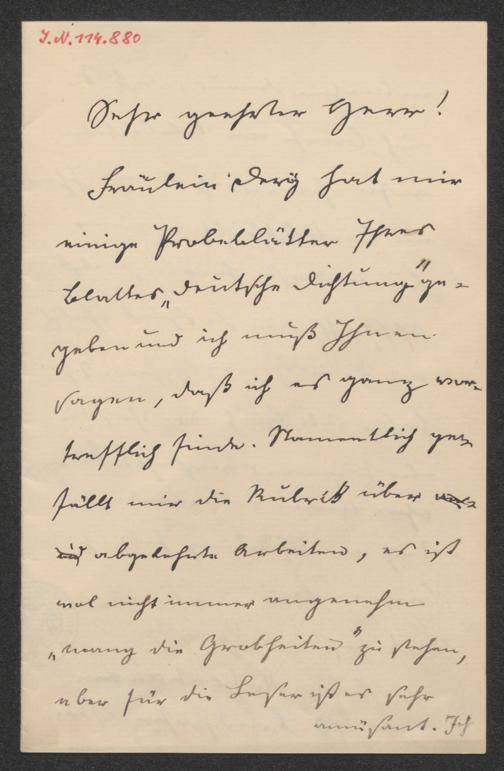 I.N. 114.880
Sehr geehrter Herr!
Fräulein Dery hat mir
einige Probeblätter Ihres
Blattes „Deutsche Dichtung" ge-
geben und ich muß Ihnen
sagen, daß ich es ganz vor-
trefflich finde. Namentlich ge-
fällt mir die Rubrik über
abgelehnte Arbeiten, es ist
wol nicht immer angenehm
„mang die Grobheiten" zu stehen,
aber für die Leser ist es sehr
amüsant. Ich